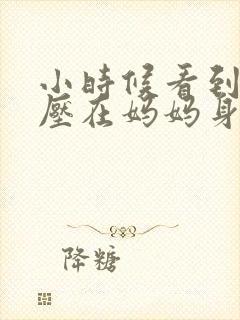 小時候看到
壓在媽媽身
降糖